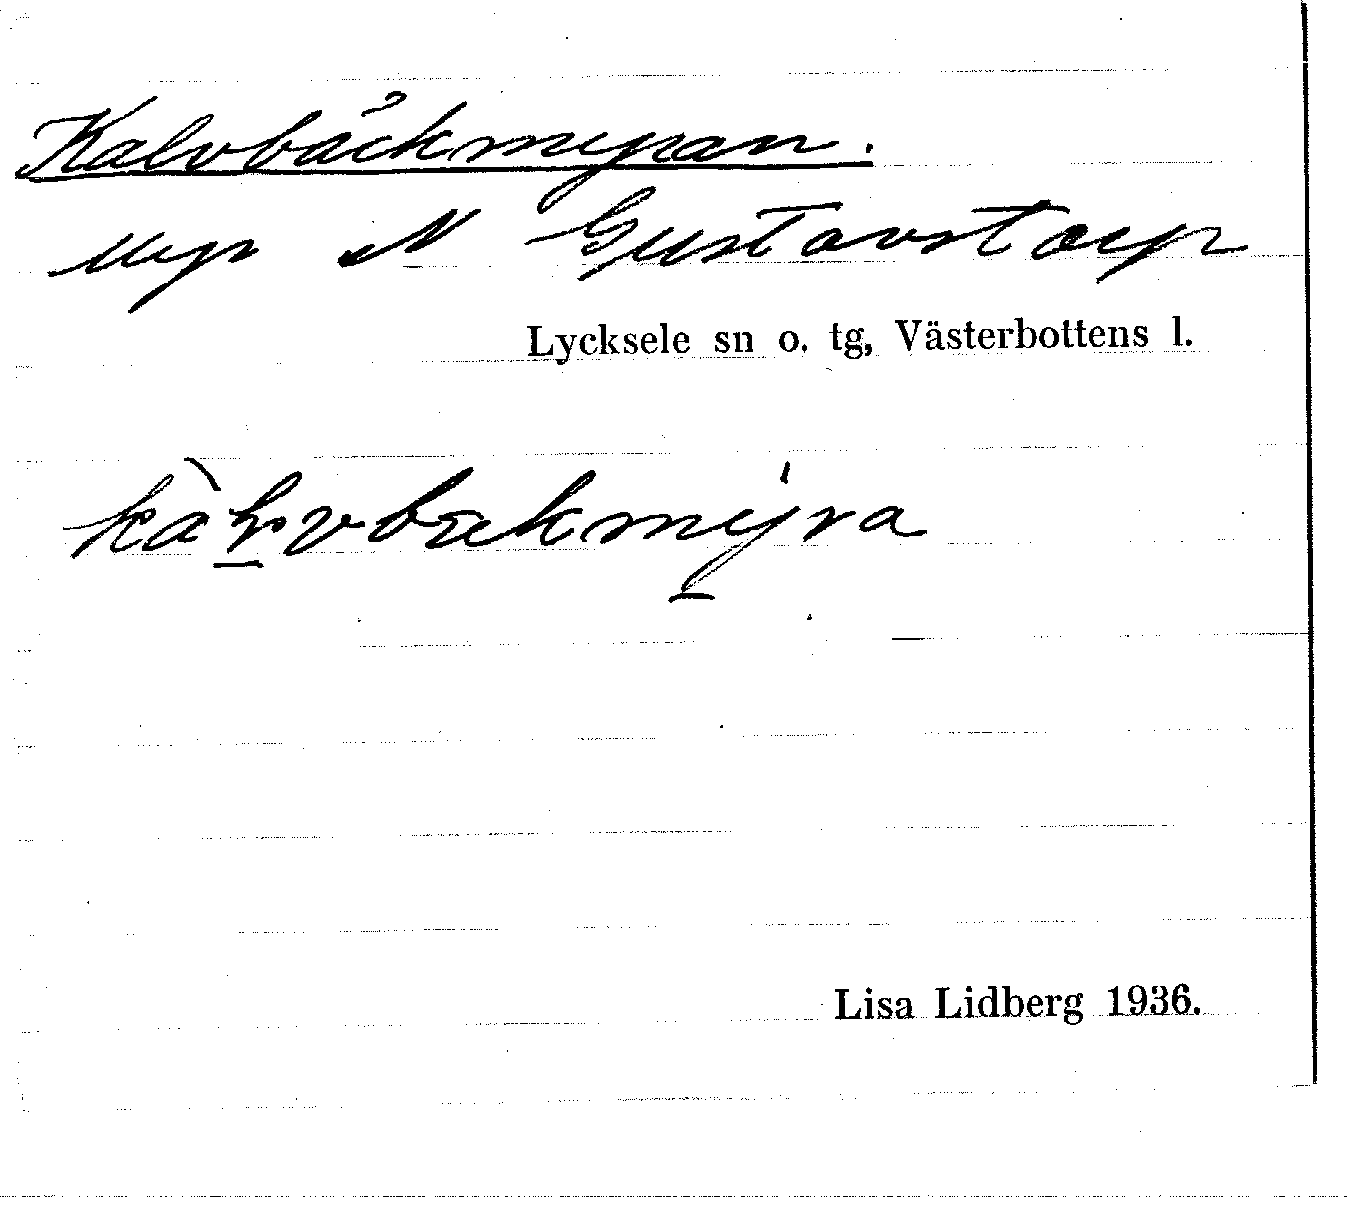 Kalvbäckmyran.
myr N Gustavstorp
Lycksele sn o. tg, Västerbottens l.
Lisa Lidberg 1936.